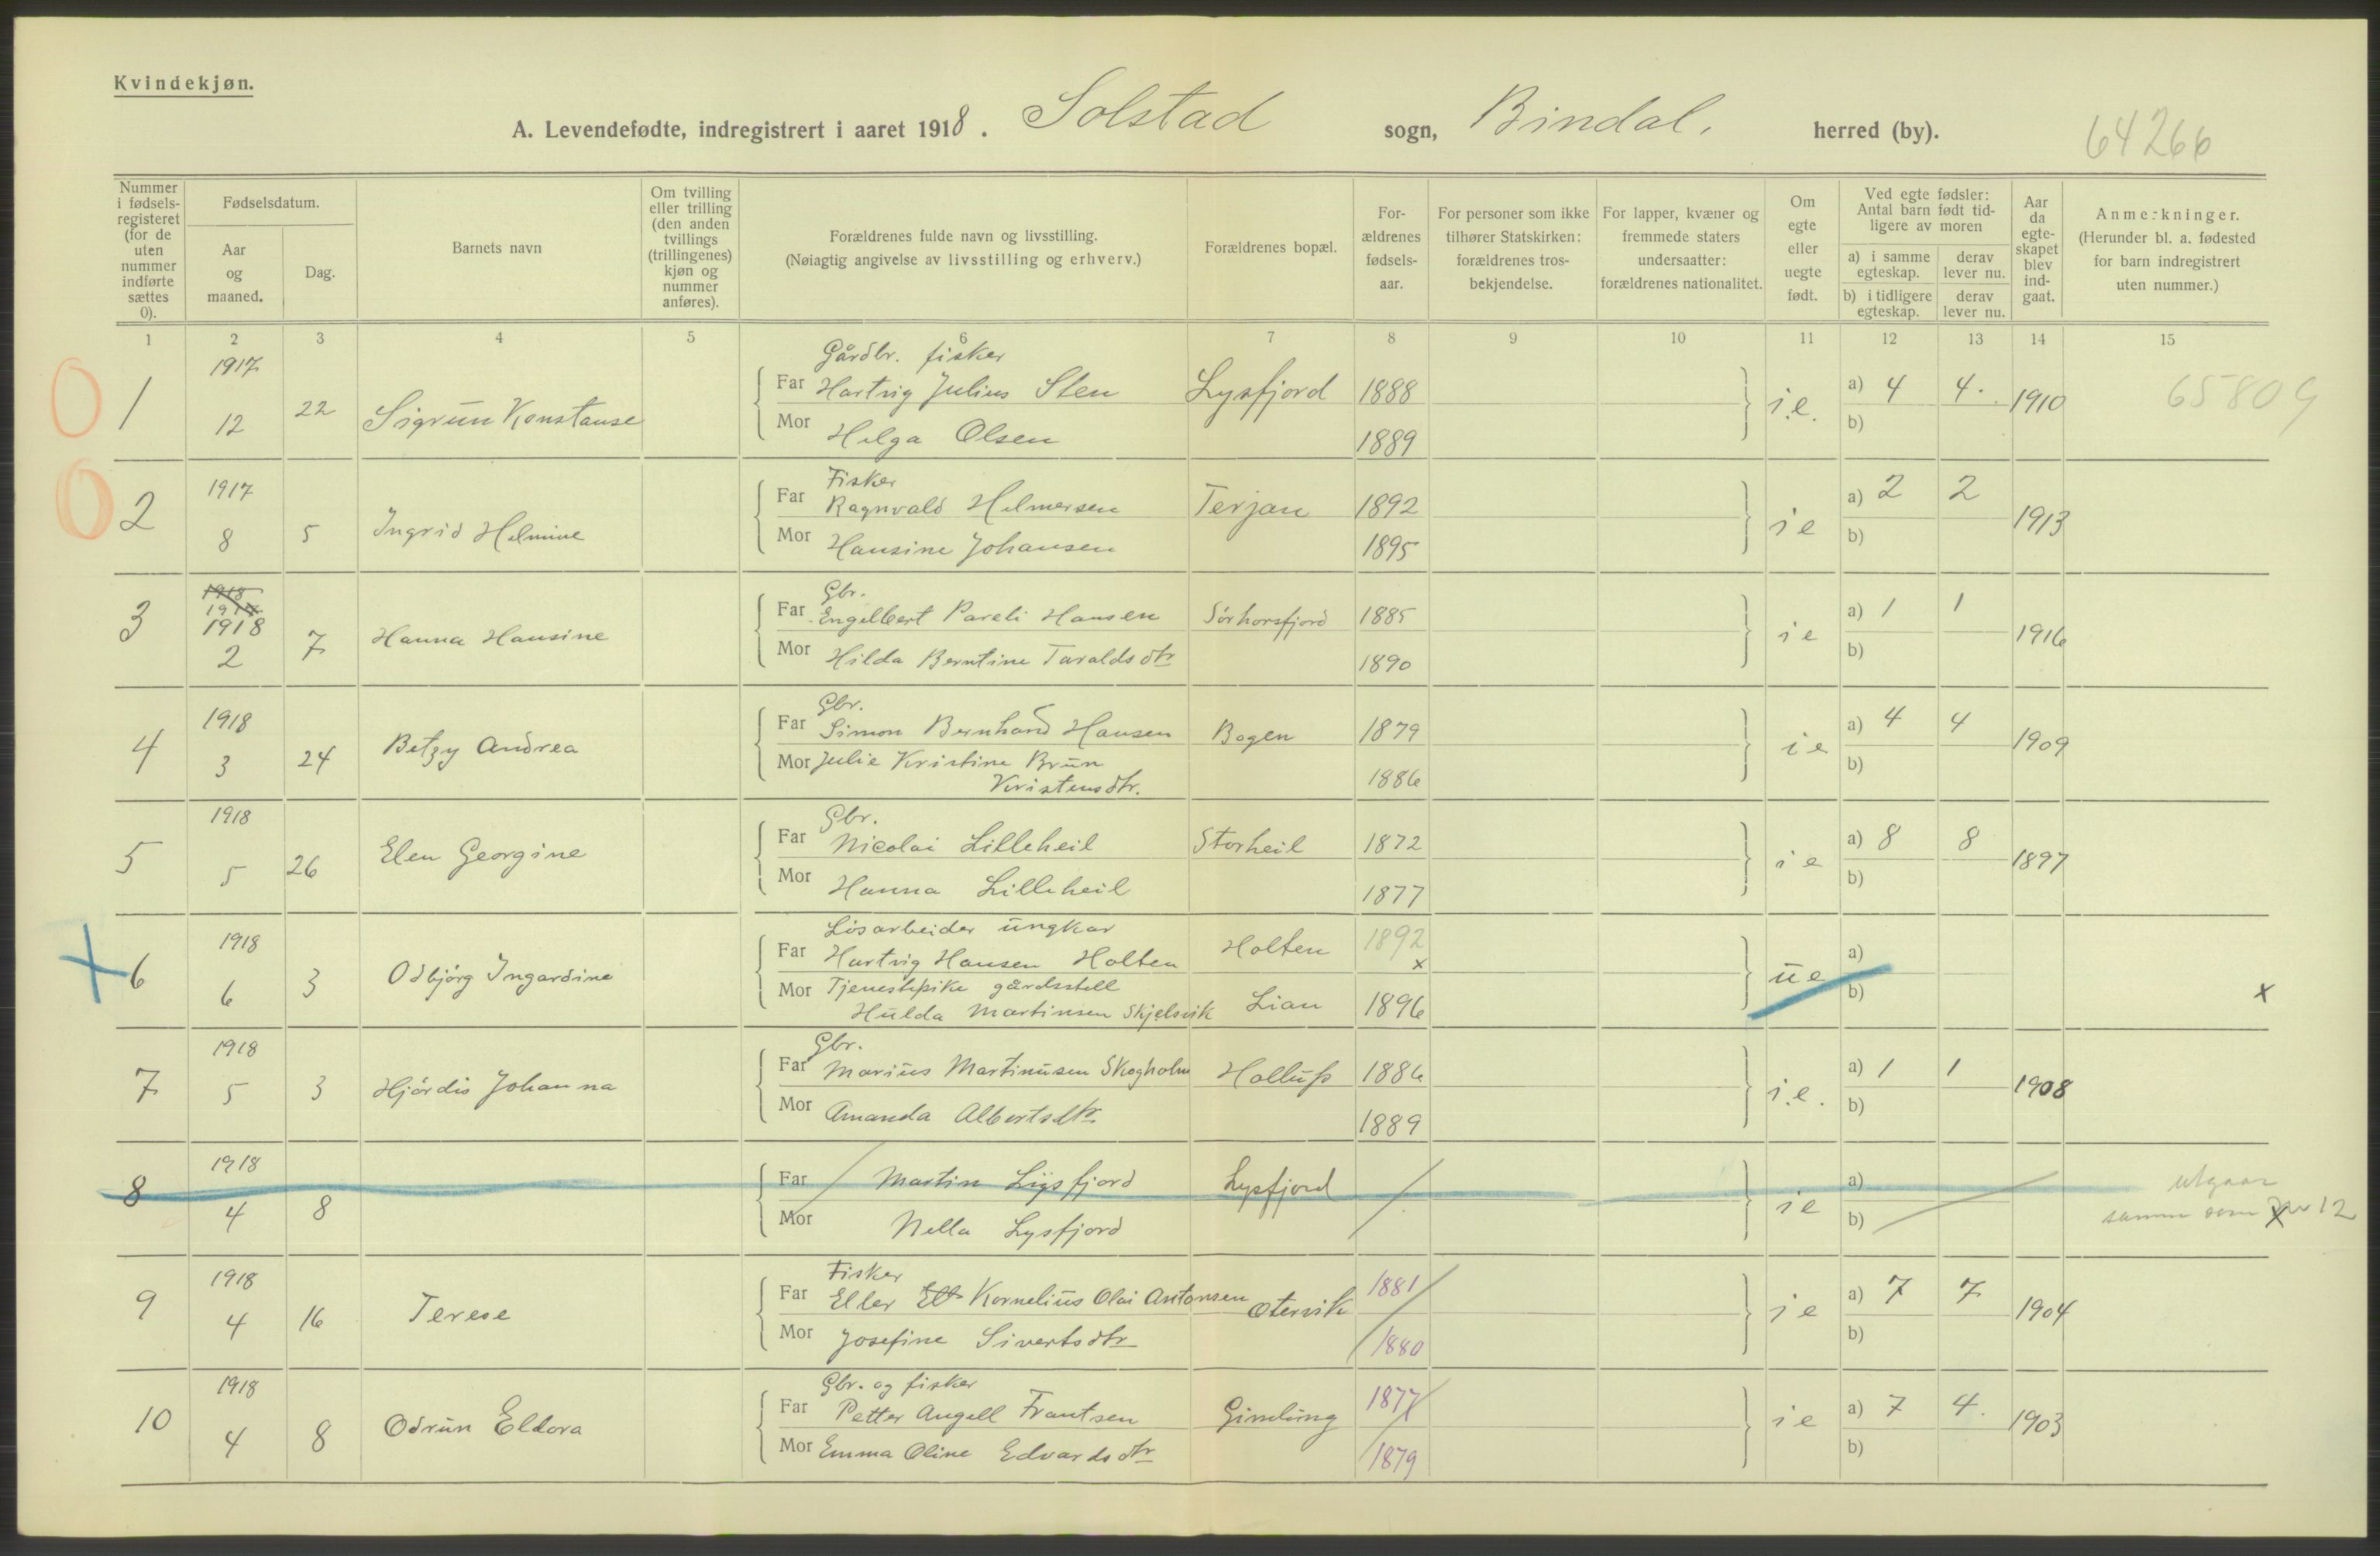 Kvindekjøn.
A. Levendefødte, indregistrert i aaret 1918. Solstad sogn, Bindal, herred (by). 64266
Nummer i fødselsregisteret (for de uten nummer indførte sættes 0).
Fødselsdatum.
Aar og maaned.
Dag.
Barnets navn
Om tvilling eller trilling (den anden tvillings (trillingenes) kjøn og nummer anføres).
Forældrenes fulde navn og livsstilling.
(Nøiagtig angivelse av livsstilling og erhverv.)
Forældrenes bopæl.
Forældrenes fødselsaar.
For personer som ikke tilhører Statskirken: forældrenes trosbekjendelse.
For lapper, kvæner og fremmede staters undersaatter: forældrenes nationalitet.
Om egte eller uegte født.
Ved egte fødsler: Antal barn født tidligere av moren
a) i samme egteskap.
derav lever nu.
b) i tidligere egteskap.
derav lever nu.
Aar da egteskapet blev indgaat.
Anmerkninger.
(Herunder bl. a. fødested for barn indregistrert uten nummer.)
1 2 3 4 5 6 7 8 9 10 11 12 13 14 15
0 1 1917 12 22 Sigrun Konstanse
Gårdbr. fisker
Far Hartvig Julius Sten Lysfjord 1888 i.e. a) 4 4. 1910 65809
Mor Helga Olsen 1889 b)
0 2 1917 8 5 Ingrid Helmine
Fisker
Far Ragnvald Helmersen Terjan 1892 i e a) 2 2 1913
Mor Hansine Johansen 1895 b)
3 1918 1917 1918 2 7 Hanna Hansine
Gbr.
Far Engelbert Pareli Hansen Sörhorsfjord 1885 i e a) 1 1 1916
Mor Hilda Berntine Taraldsdtr 1890 b)
4 1918 3 24 Betzy Andrea
Gbr.
Far Simon Bernhard Hansen Bogen 1879 i e a) 4 4 1909
Mor Julie Kristine Brun
Kristensdtr. 1886 b)
5 1918 5 26 Elen Georgine
Gbr.
Far Nicolai Lilleheil Storheil 1872 i e a) 8 8 1897
Mor Hanna Lilleheil 1877 b)
6 1918 6 3 Odbjörg Ingardine
Lösarbeider ungkar
Far Hartvig Hansen Holten Holten 1892 x ue a)
Mor Tjenestepike gårdsstell
Hulda Martinsen Skjelsvik Lian 1896 b) x
7 1918 5 3 Hjördis Johanna
Gbr.
Far Marius Martinusen Skogholm Holluss 1886 i.e. a) 1 1 1908
Mor Amanda Albertsdtr. 1889 b)
8 1918 4 8
Far Martin Lysfjord Lysfjord i e a) utgaar
Mor Nella Lysfjord b) samme som nr 12
9 1918 4 16 Terese
Fisker
Far Eller Ell Kornelius Olai Antonsen Otervik 1881 i e a) 7 7 1904
Mor Josefine Sivertsdtr 1880 b)
10 1918 4 8 Odrun Eldora
Gbr. og fisker
Far Petter Angell Frantsen Gimling 1877 i e a) 7 4. 1903
Mor Emma Oline Edvardsdtr 1879 b)